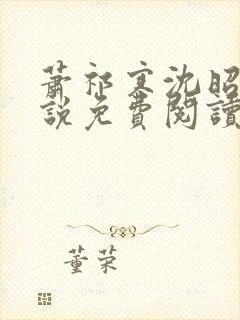 蕭祁寒沈昭
說免費閱讀
董荣